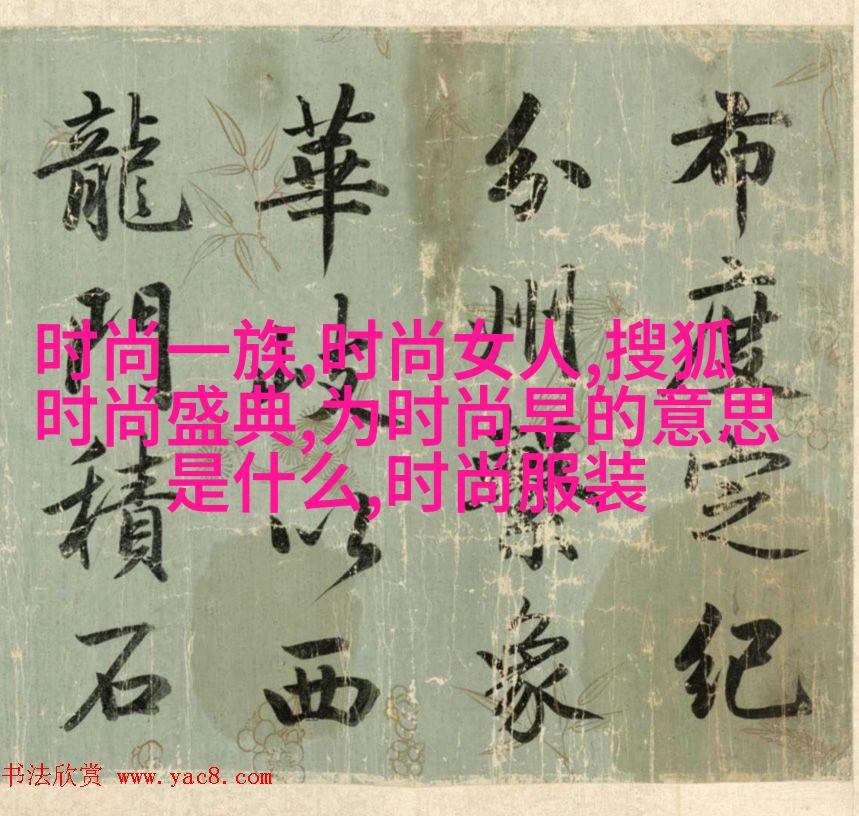 布度定紀
分州繫象
華岐以西
龍門積石
时尚一族,时尚女人,搜狐
时尚盛典,为时尚早的意思
是什么,时尚服装
书法欣赏 www.yac8.com